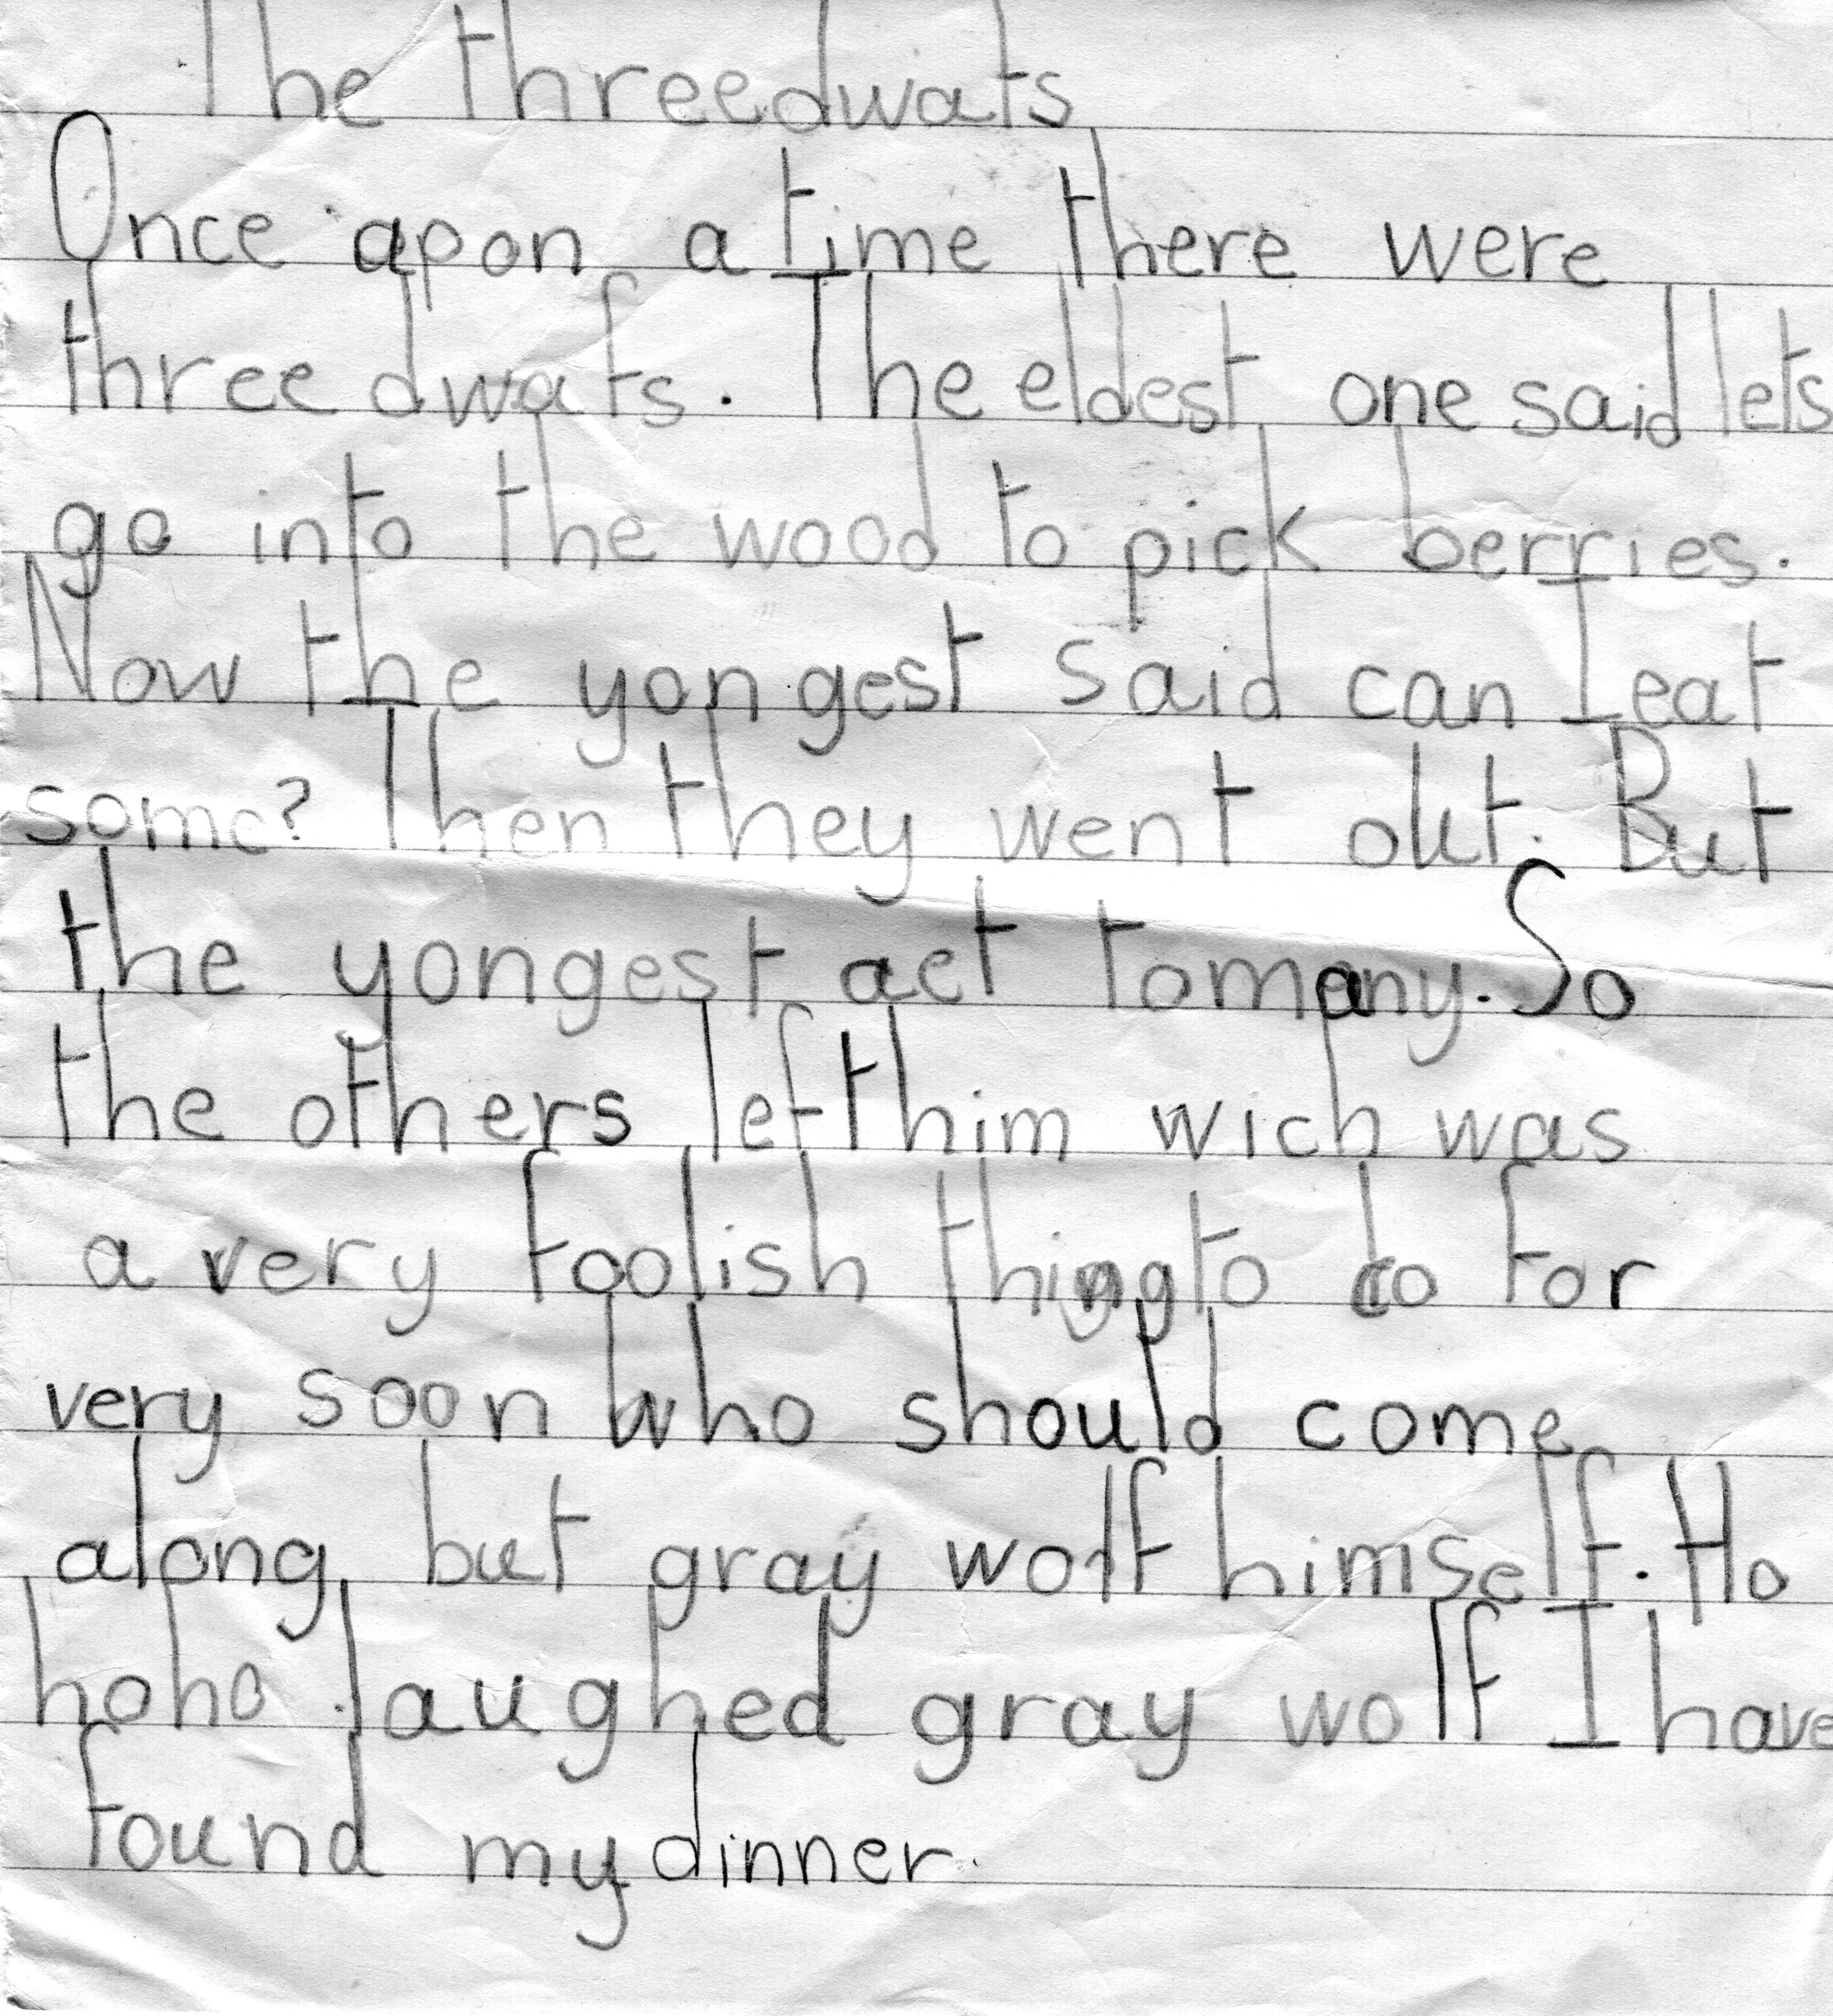 The three dwafs
Once apon a time there were
three dwafs. The eldest one said lets
go into the wood to pick berries.
Now the yongest said can I eat
some? Then they went out. But
the yongest aet to many. So
the others left him wich was
a very foolish thing to do for
very soon who should come
along but gray wolf himself. Ho
hoho laughed gray wolf I have
found my dinner.